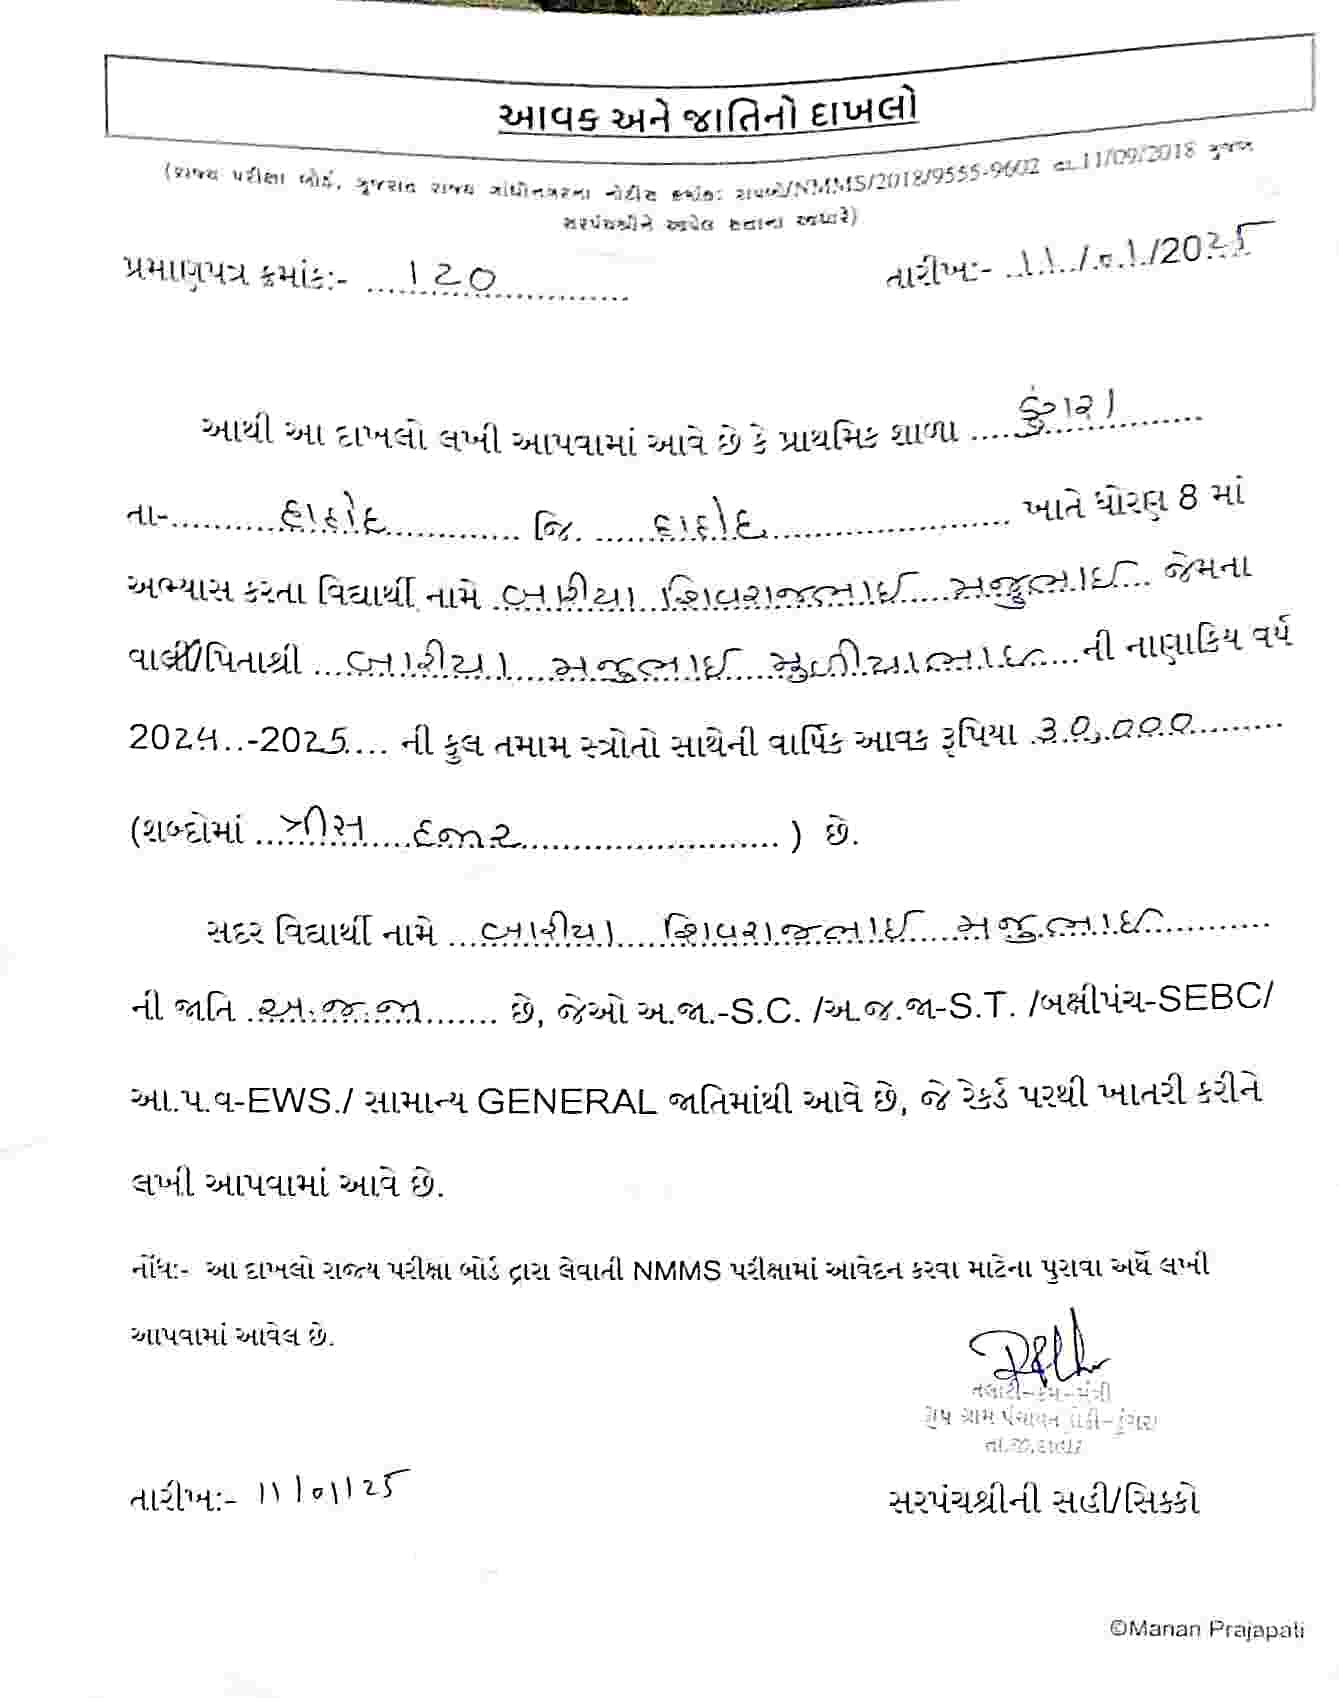 આવક અને જાતિનો દાખલો
(રાજ્ય પરીક્ષા બોર્ડ, ગુજરાત રાજ્ય ગાંધીનગરના નોટીસ ક્રમાંક: રાપબો/NMMS/2018/9555-9602 તા.11/09/2018 મુજબ
સરપંચશ્રીને આપેલ સત્તાના આધારે)
પ્રમાણપત્ર ક્રમાંક:- ....૧૨૦..............
તારીખ:- ..૧૧../.૦.૧./2025
આથી આ દાખલો લખી આપવામાં આવે છે કે પ્રાથમિક શાળા .....ડુંગરા..........
તા-..........દાહોદ............... જિ. ......દાહોદ........................... ખાતે ધોરણ 8 માં
અભ્યાસ કરતા વિદ્યાર્થી નામે ..બારીયા શિવરાજભાઈ....મજુભાઈ... જેમના
વાલી/પિતાશ્રી ...બારીયા મજુભાઈ મુળીયાભાઈ.....ની નાણાકિય વર્ષ
2024..-2025.... ની કુલ તમામ સ્ત્રોતો સાથેની વાર્ષિક આવક રૂપિયા .૩૦,૦૦૦..........
(શબ્દોમાં ...ત્રીસ હજાર.............................. ) છે.
સદર વિદ્યાર્થી નામે ...બારીયા શિવરાજભાઈ મજુભાઈ............
ની જાતિ .અ.જ.જા........ છે, જેઓ અ.જા.-S.C. /અ.જ.જા-S.T. /બક્ષીપંચ-SEBC/
આ.પ.વ-EWS./ સામાન્ય GENERAL જાતિમાંથી આવે છે, જે રેકર્ડ પરથી ખાતરી કરીને
લખી આપવામાં આવે છે.
નોંધ:- આ દાખલો રાજ્ય પરીક્ષા બોર્ડ દ્વારા લેવાતી NMMS પરીક્ષામાં આવેદન કરવા માટેના પુરાવા અર્થે લખી
આપવામાં આવેલ છે.
તલાટી-કમ-મંત્રી
ગ્રામ પંચાયત ડુંગરા
તા.જી.દાહોદ
તારીખ:- ૧૧/૦૧/૨૫
સરપંચશ્રીની સહી/સિક્કો
©Manan Prajapati